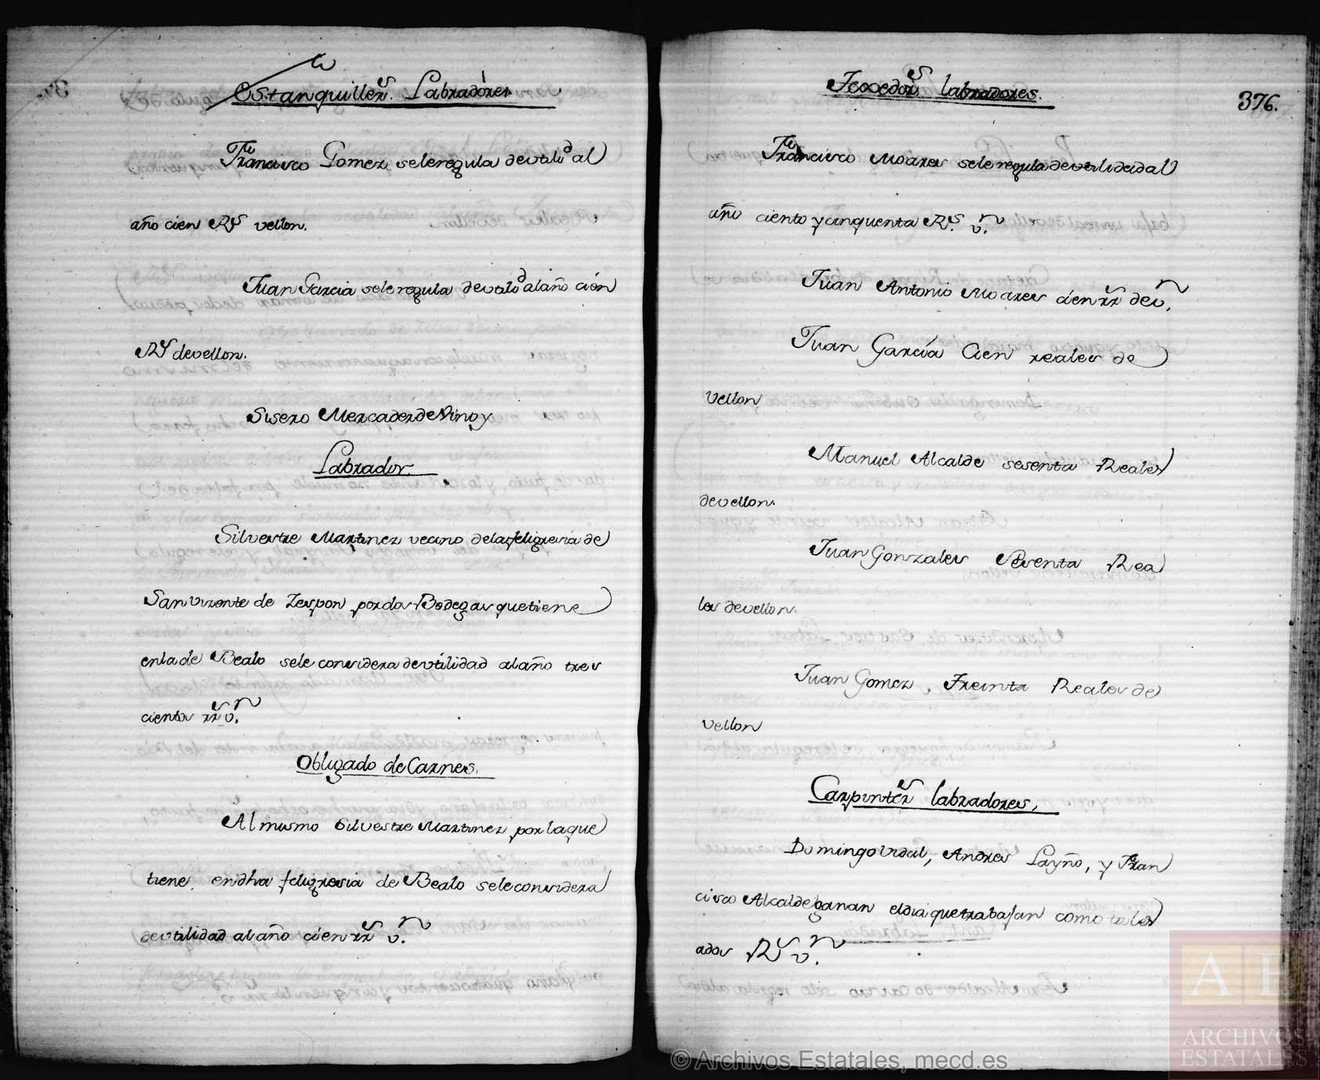 Estanquiller.s Labradores
Francisco Gomez sele regula de utilid.d al
año cien R.s vellon.
Juan Garcia sele regula de utilid.d al año cien
R.s de vellon.
Mercader de Vino y
Labrador.
Silvestre Martinez vecino de la feligresia de
San Vizente de por dos Bodegas que tiene
en la de Bealo sele considera de utilidad al año tres
cientos rr.s v.n
Obligado de Carnes.
Al mismo Silvestre Martinez por la que
tiene en dha feligresia de Bealo sele considera
de utilidad al año cien rr.s v.n
Texedor.s labradores.
376.
Francisco Moares sele regula de utilidad al
año ciento y cinquenta R.s v.n
Juan Antonio Moares cien rr.s de v.n
Juan García Cien reales de
vellon
Manuel Alcalde sesenta Reales
de vellon.
Juan Gonzales Rea
les de vellon.
Juan Gomez, Treinta Reales de
vellon
Carpinter.s labradores.
Domingo Vidal, Andres Layño, y Fran
cisco Alcalde ganan el dia que trabajan como tales
a dos R.s v.n
© Archivos Estatales, mecd.es
AE
ARCHIVOS
ESTATALES